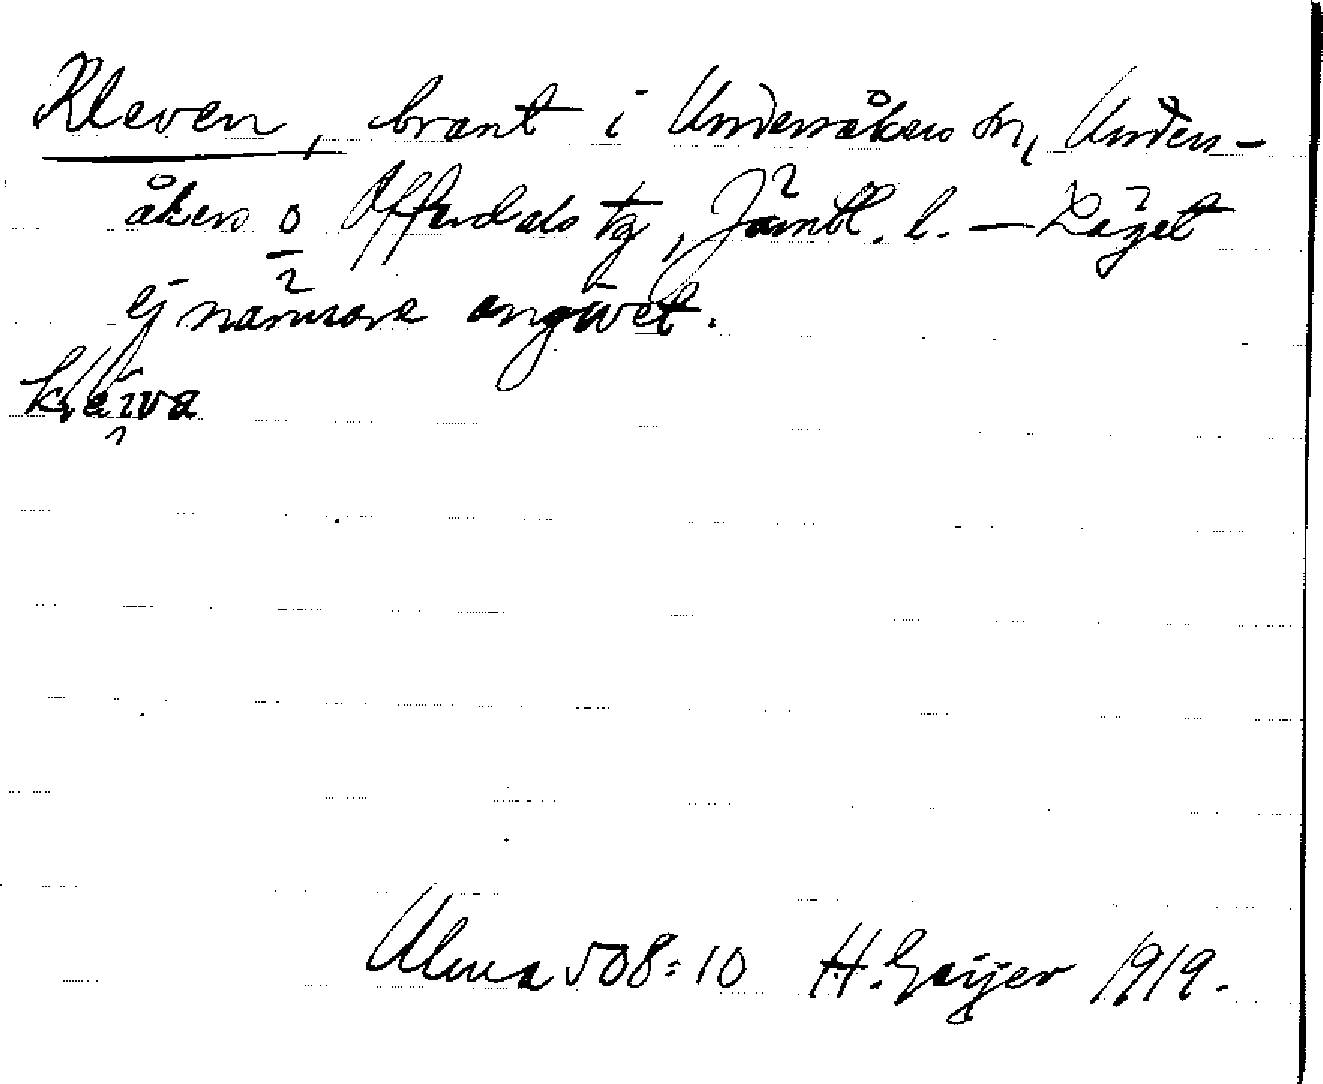 Kleven, brant i Undersåkers sn, Unders-
åkers o Offerdals tg, Jämtl. l. — Läget
ej närmare angivet.
Uma 508:10 H. Geijer 1919.